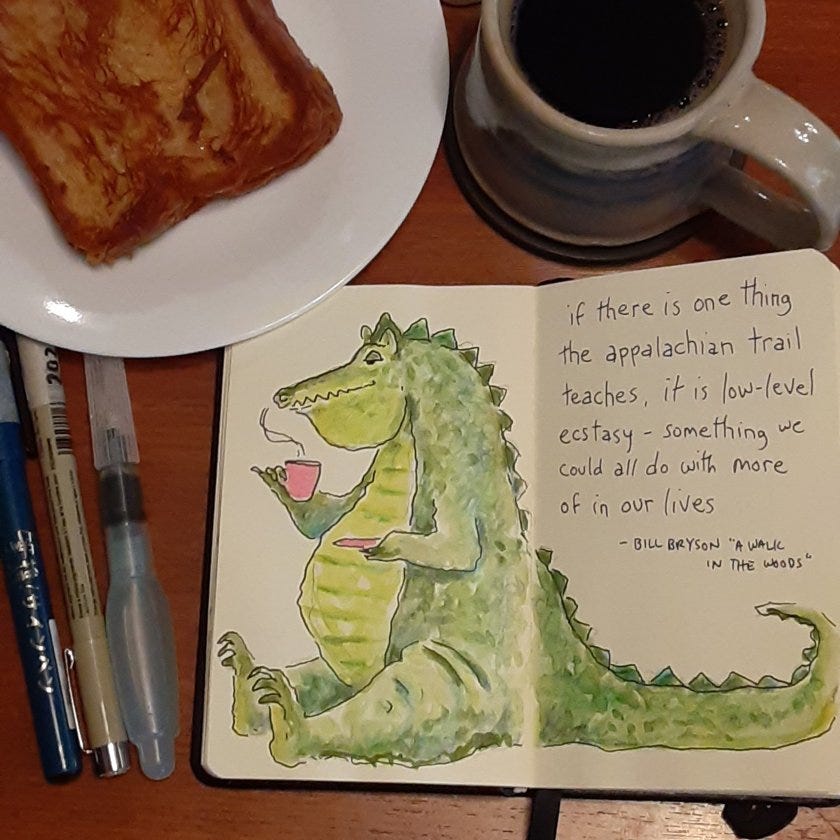 if there is one thing
the appalachian trail
teaches, it is low-level
ecstasy - something we
could all do with more
of in our lives
- BILL BRYSON "A WALK
IN THE WOODS"
202